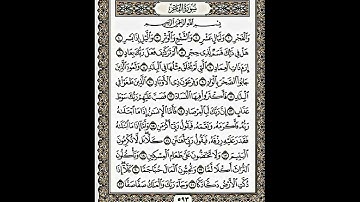 سُورَةُ الفَجْرِ
بِسْمِ ٱللَّهِ ٱلرَّحْمَٰنِ ٱلرَّحِيمِ
وَٱلْفَجْرِ ١ وَلَيَالٍ عَشْرٍ ٢ وَٱلشَّفْعِ وَٱلْوَتْرِ ٣ وَٱلَّيْلِ إِذَا يَسْرِ ٤
هَلْ فِي ذَٰلِكَ قَسَمٌ لِّذِي حِجْرٍ ٥ أَلَمْ تَرَ كَيْفَ فَعَلَ رَبُّكَ بِعَادٍ ٦
إِرَمَ ذَاتِ ٱلْعِمَادِ ٧ ٱلَّتِي لَمْ يُخْلَقْ مِثْلُهَا فِي ٱلْبِلَٰدِ ٨ وَثَمُودَ ٱلَّذِينَ
جَابُوا۟ ٱلصَّخْرَ بِٱلْوَادِ ٩ وَفِرْعَوْنَ ذِي ٱلْأَوْتَادِ ١٠ ٱلَّذِينَ طَغَوْا۟ فِي
ٱلْبِلَٰدِ ١١ فَأَكْثَرُوا۟ فِيهَا ٱلْفَسَادَ ١٢ فَصَبَّ عَلَيْهِمْ رَبُّكَ سَوْطَ
عَذَابٍ ١٣ إِنَّ رَبَّكَ لَبِٱلْمِرْصَادِ ١٤ فَأَمَّا ٱلْإِنسَٰنُ إِذَا مَا ٱبْتَلَىٰهُ
رَبُّهُۥ فَأَكْرَمَهُۥ وَنَعَّمَهُۥ فَيَقُولُ رَبِّي أَكْرَمَنِ ١٥ وَأَمَّا إِذَا مَا ٱبْتَلَىٰهُ
فَقَدَرَ عَلَيْهِ رِزْقَهُۥ فَيَقُولُ رَبِّي أَهَٰنَنِ ١٦ كَلَّا بَل لَّا تُكْرِمُونَ
ٱلْيَتِيمَ ١٧ وَلَا تَحَٰضُّونَ عَلَىٰ طَعَامِ ٱلْمِسْكِينِ ١٨ وَتَأْكُلُونَ
ٱلتُّرَاثَ أَكْلًا لَّمًّا ١٩ وَتُحِبُّونَ ٱلْمَالَ حُبًّا جَمًّا ٢٠ كَلَّا إِذَا
دُكَّتِ ٱلْأَرْضُ دَكًّا دَكًّا ٢١ وَجَاءَ رَبُّكَ وَٱلْمَلَكُ صَفًّا صَفًّا ٢٢
٥٩٣